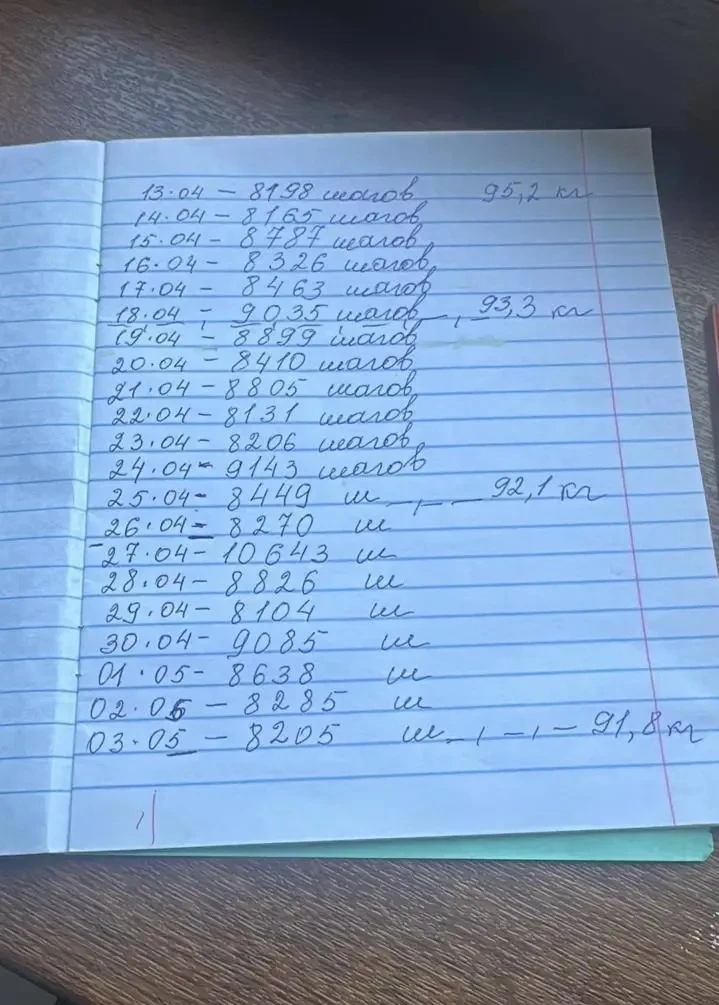 13.04 – 8198 шагов 95,2 кг
14.04 – 8165 шагов
15.04 – 8787 шагов
16.04 – 8326 шагов
17.04 – 8463 шагов
18.04 – 9035 шагов 93,3 кг
19.04 – 8899 шагов
20.04 – 8410 шагов
21.04 – 8805 шагов
22.04 – 8131 шагов
23.04 – 8206 шагов
24.04 – 9143 шагов
25.04 – 8449 ш 92,1 кг
26.04 – 8270 ш
27.04 – 10643 ш
28.04 – 8826 ш
29.04 – 8104 ш
30.04 – 9085 ш
01.05 – 8638 ш
02.05 – 8285 ш
03.05 – 8205 ш 91,8 кг